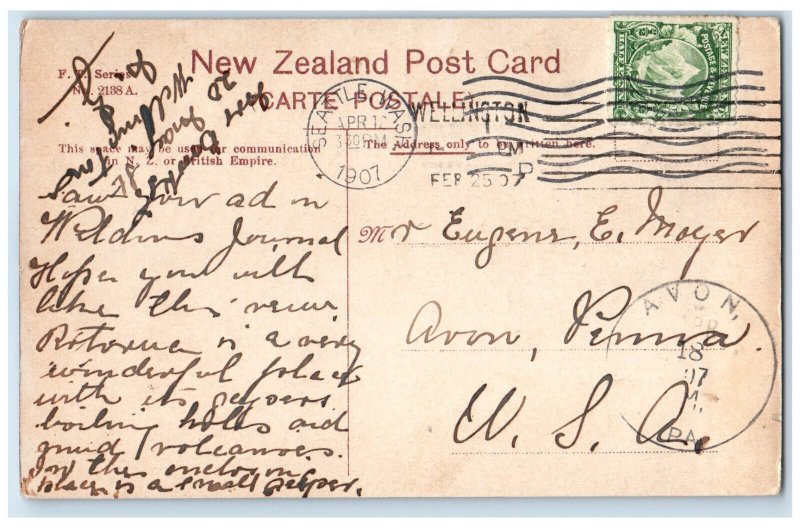 New Zealand Post Card
F. T. Series
No. 2138 A.
CARTE POSTALE
NEW ZEALAND
POSTAGE & REVENUE
SEATTLE, WASH.
APR 1
3 30 PM
1907
WELLINGTON
1
PM
FEB 25 07
This space may be used for communication
in N. Z. or British Empire.
The Address only to be written here.
Saw your ad in
Weldons Journal
Hope you will
like this view.
Rotorua is a very
wonderful place
with its geysers
boiling holes and
mud volcanoes.
In the
place is a small geyser.
Mr Eugene, E. Moyer
Avon, Penna.
U. S. A.
AVON,
APR
18
07
PA.
Wellington